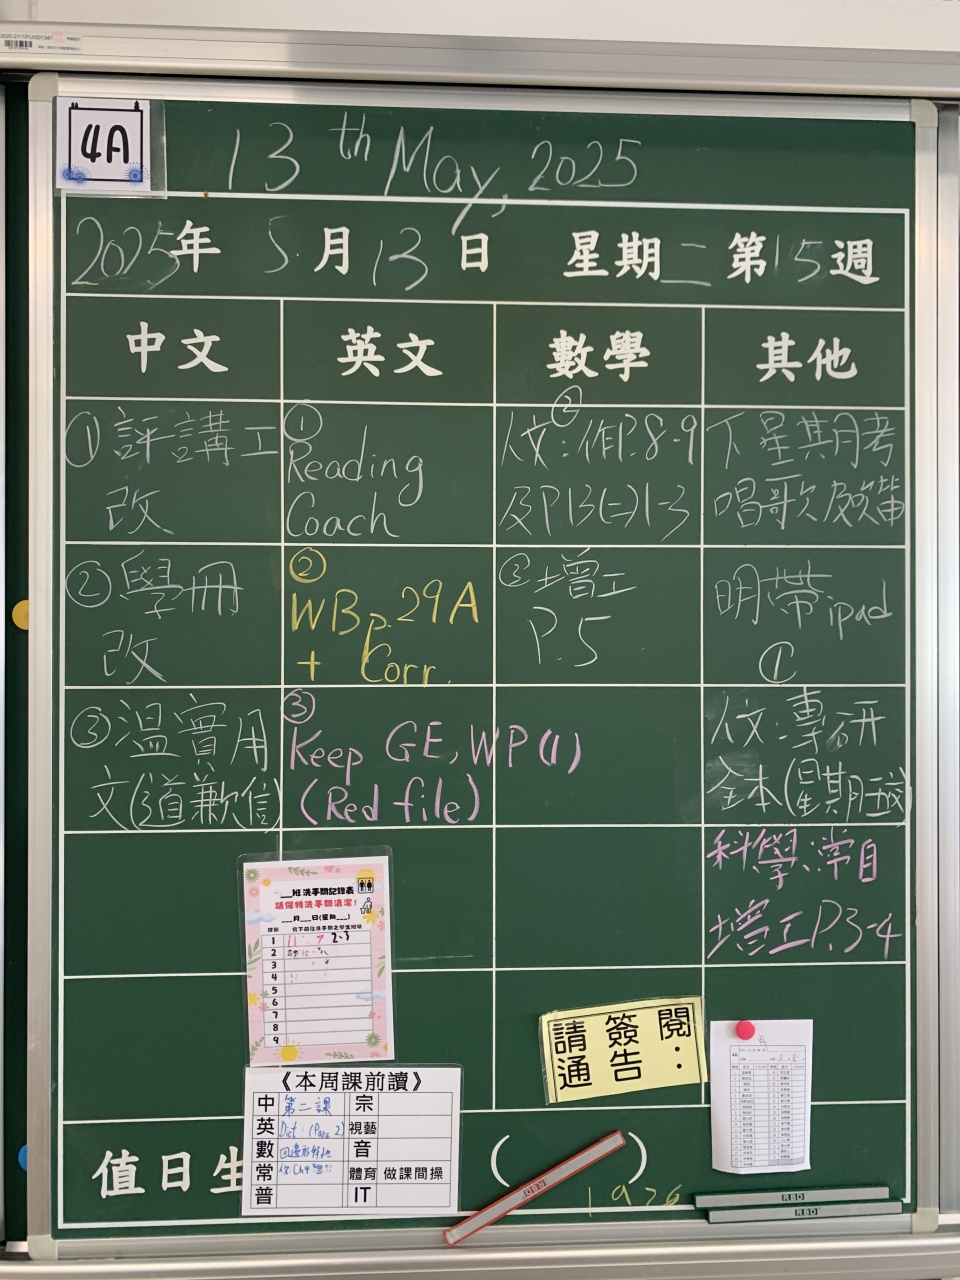 4A
13th May, 2025
2025年 5月13日 星期二 第15週
中文 英文 數學 其他
①評講工
改
②學冊
改
③溫實用
文(道歉信)
①
Reading
Coach
②
WB p.29A
+ Corr.
③
Keep GE, WP(1)
(Red file)
②
交:作P.8-9
及P.13(二)1-3
③增工
P.5
下星期月考
唱歌及笛
明帶ipad
①
交:專研
全本(星期五交)
科學:常自
增工P.3-4
班洗手間記錄表
請保持洗手間清潔!
月 日(星期 )
1
2
3
4
5
6
7
8
9
請簽閱
通告:
《本周課前讀》
中 第二課 宗
英 Dict: 視藝
數 音
常 體育 做課間操
普 IT
值日生 ( )
1926
RBD
RBD
RBD